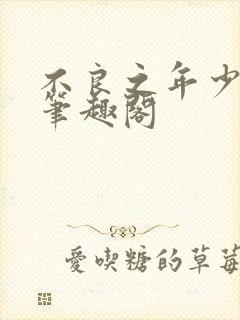 不良之年少
筆趣閣
愛喫糖的草莓